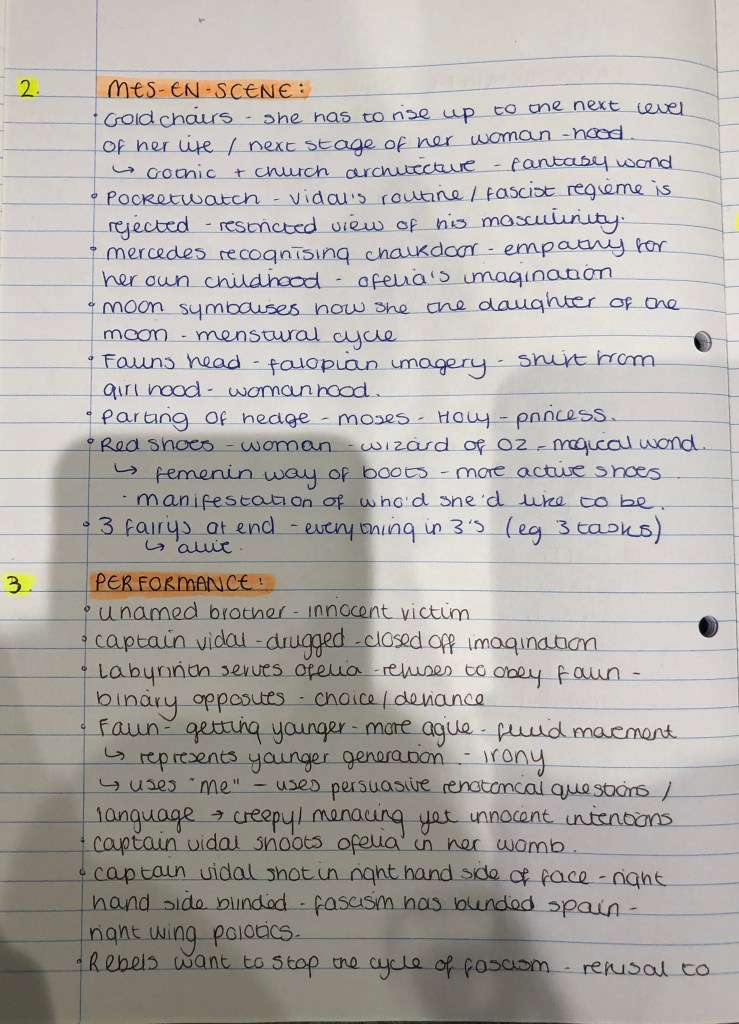 2. MES-EN-SCENE:
• Gold chairs - she has to rise up to the next level
of her life / next stage of her woman-hood.
↳ Gothic + church architecture - fantasy world
• Pocketwatch - vidal's routine / fascist regieme is
rejected - restricted view of his masculinity.
• mercedes recognising chalkdoor - empathy for
her own childhood - ofelia's imagination
• moon symbolises how she the daughter of the
moon - menstural cycle
• Fauns head - falopian imagery - shift from
girlhood - womanhood.
• Parting of hedge - moses - Holy - princess.
• Red shoes - woman - wizard of OZ - magical world.
↳ femenin way of boots - more active shoes
- manifestation of who'd she'd like to be.
• 3 fairys at end - everything in 3's (eg 3 tasks)
↳ alive.
3. PERFORMANCE:
• unamed brother - innocent victim
• captain vidal - drugged - closed off imagination
• Labyrinth serves ofelia - refuses to obey faun -
binary opposites - choice / deviance
• Faun - getting younger - more agile - fluid movement
↳ represents younger generation - irony
↳ uses "me" - uses persuasive rehotorical questions /
language → creepy / menacing yet innocent intentions
• captain vidal shoots ofelia in her womb.
• captain vidal shot in right hand side of face - right
hand side blinded - fascism has blinded spain -
right wing polotics.
• Rebels want to stop the cycle of fascism - refusal to